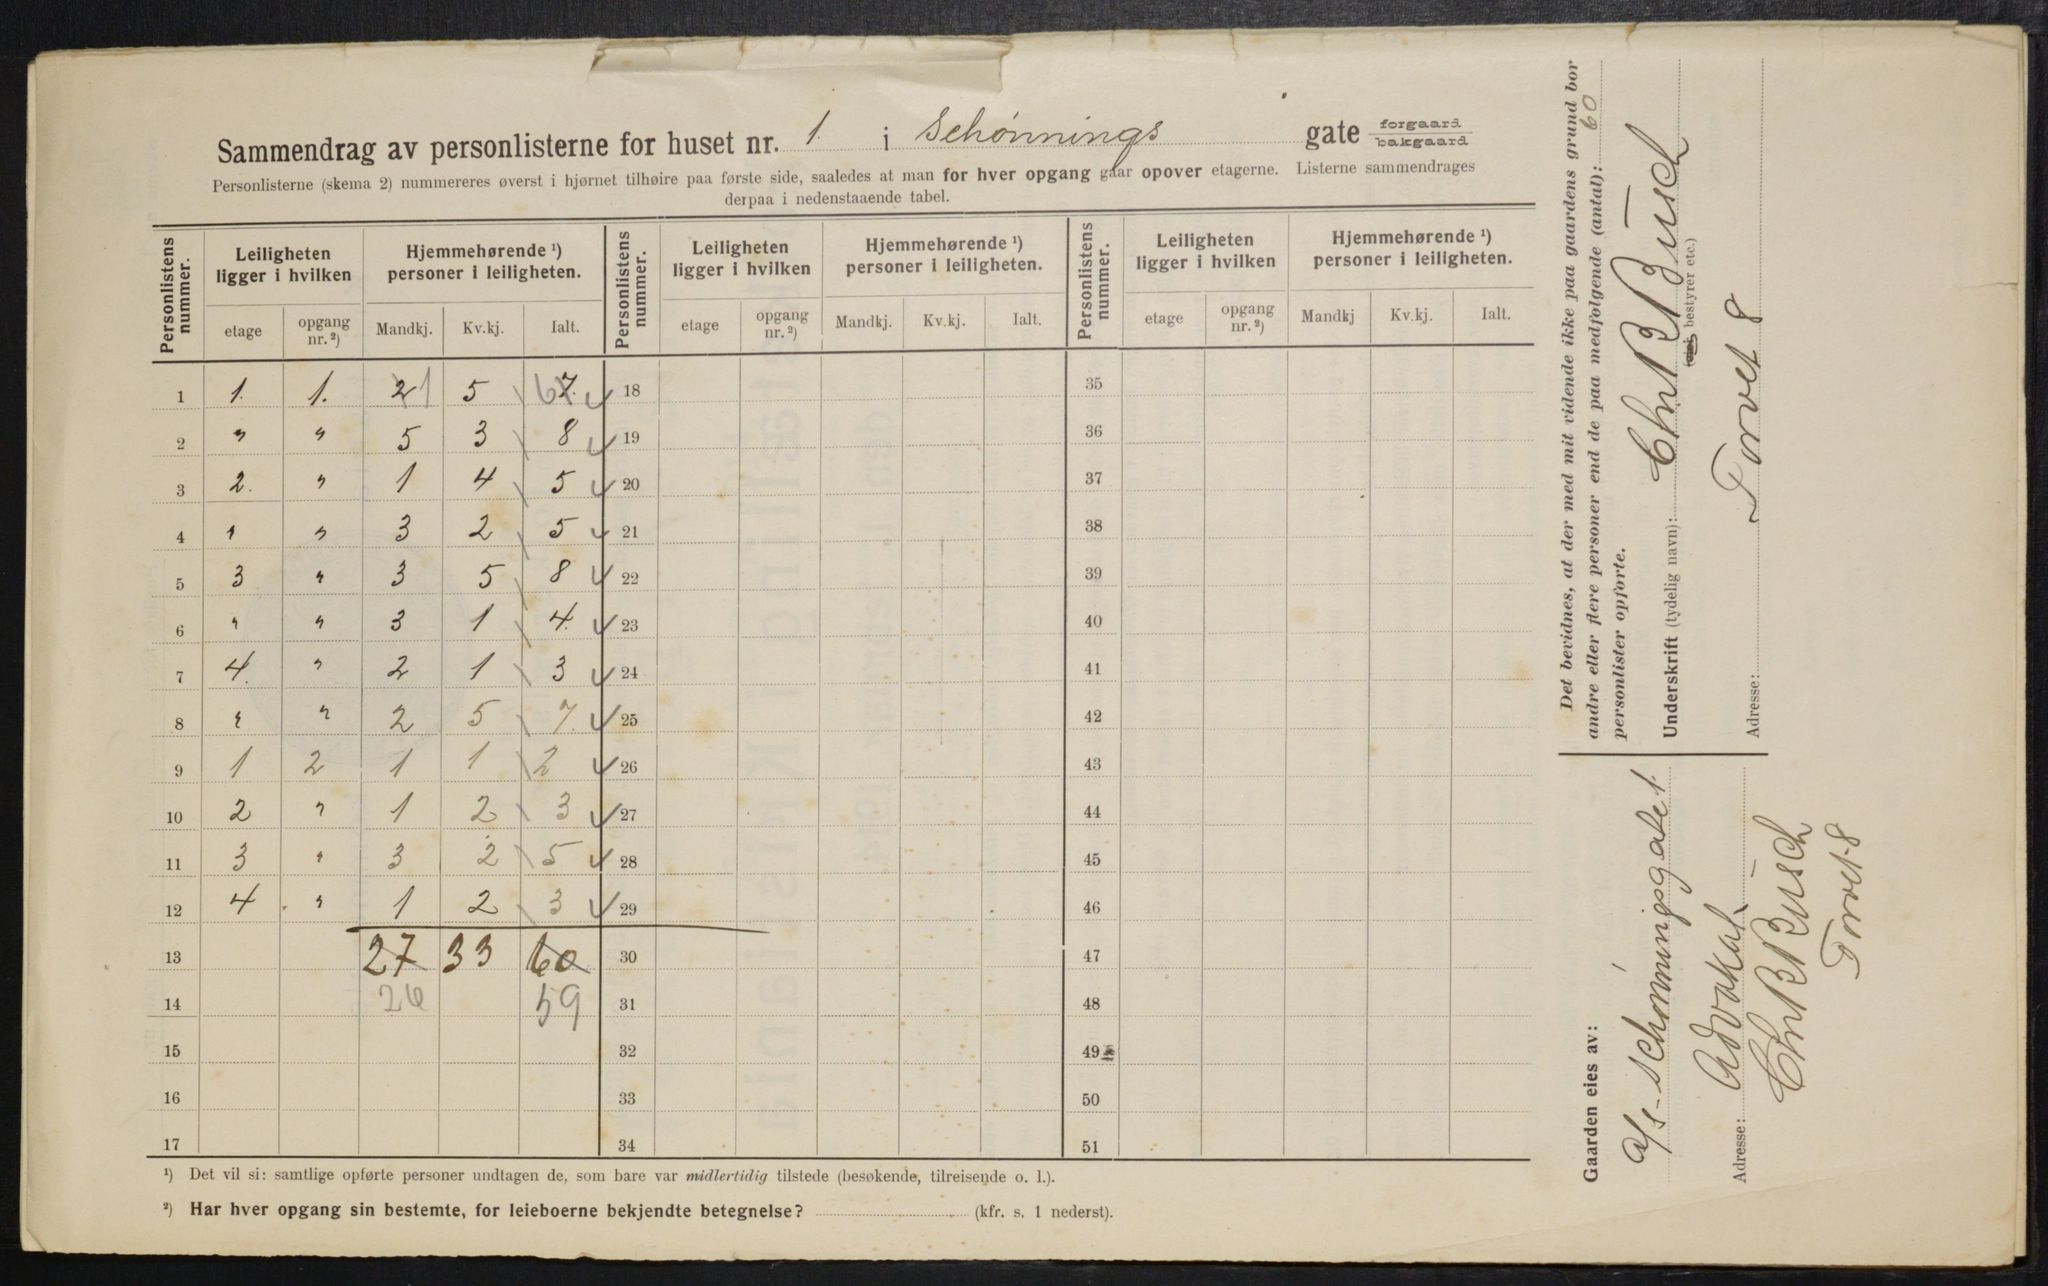 Sammendrag av personlisterne for huset nr. 1. i Schønnings gate forgaard
bakgaard
Personlisterne (skema 2) nummereres øverst i hjørnet tilhøire paa første side, saaledes at man for hver opgang gaar opover etagerne. Listerne sammendrages
derpaa i nedenstaaende tabel.
Personlistens nummer. Leiligheten ligger i hvilken Hjemmehørende ¹) personer i leiligheten. Personlistens nummer. Leiligheten ligger i hvilken Hjemmehørende ¹) personer i leiligheten. Personlistens nummer. Leiligheten ligger i hvilken Hjemmehørende ¹) personer i leiligheten.
etage opgang nr. ²) Mandkj. Kv.kj. Ialt. etage opgang nr. ²) Mandkj. Kv.kj. Ialt. etage opgang nr. ²) Mandkj Kv.kj. Ialt.
1 1. 1. 2 1 5 6 7. 18 35
2 " " 5 3 8 19 36
3 2. " 1 4 5 20 37
4 " " 3 2 5 21 38
5 3 " 3 5 8 22 39
6 " " 3 1 4. 23 40
7 4. " 2 1 3 24 41
8 " " 2 5 7. 25 42
9 1 2 1 1 2 26 43
10 2 " 1 2 3 27 44
11 3 " 3 2 5 28 45
12 4 " 1 2 3 29 46
13 27 33 60 30 47
14 26 59 31 48
15 32 49
16 33 50
17 34 51
¹) Det vil si: samtlige opførte personer undtagen de, som bare var midlertidig tilstede (besøkende, tilreisende o. l.).
²) Har hver opgang sin bestemte, for leieboerne bekjendte betegnelse? (kfr. s. 1 nederst).
Det bevidnes, at der med mit vidende ikke paa gaardens grund bor
andre eller flere personer end de paa medfølgende (antal): 60
personlister opførte.
Underskrift (tydelig navn): Chr B Busch
bestyrer etc.)
Adresse: Torvet 8
Gaarden eies av:
A/s Schønningsgate 1.
Advokat
Adresse: Chr B Busch
Torvet 8